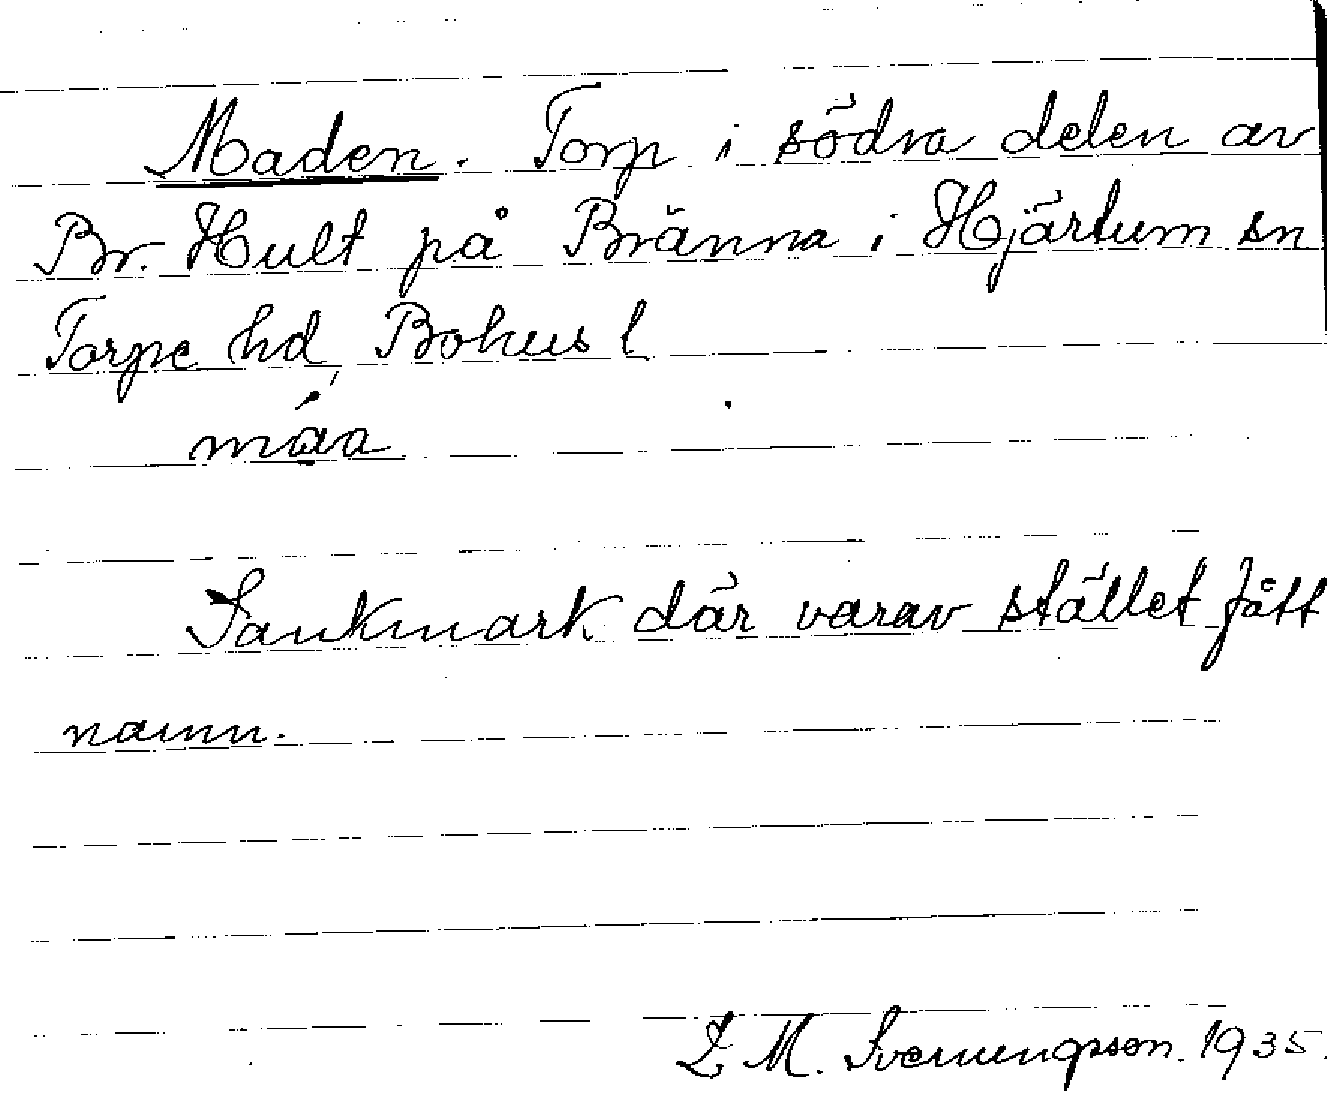 Maden. Torp i södra delen av
Br. Hult på Bränna i Hjärtum sn
Torpe hd, Bohus l
máa
Sankmark där varav stället fått
namn.
M. Svenungsson. 1935.